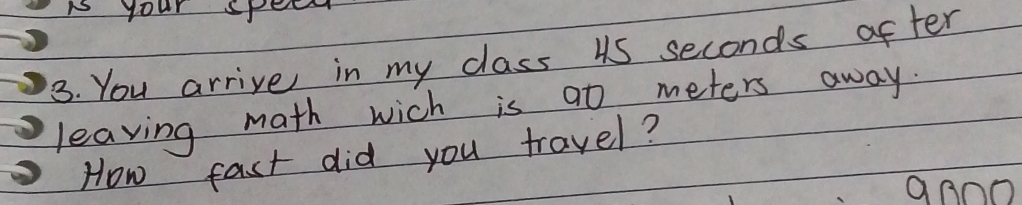 is your speed
3. You arrive in my class 45 seconds after
leaving math wich is 90 meters away.
How fast did you travel?
9000